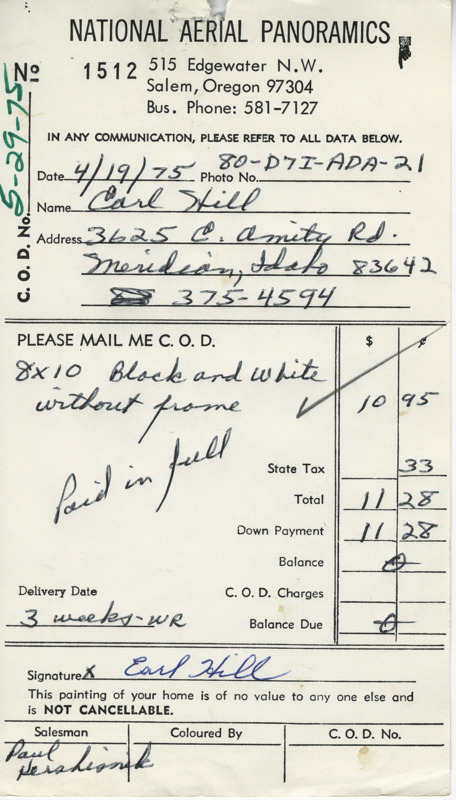 NATIONAL AERIAL PANORAMICS
No 1512 515 Edgewater N.W.
Salem, Oregon 97304
Bus. Phone: 581-7127
IN ANY COMMUNICATION, PLEASE REFER TO ALL DATA BELOW.
5-29-75
C. O. D. No.
Date 4/19/75 Photo No. 80-D7I-ADA-21
Name Earl Hill
Address 3625 E. Amity Rd.
Meridian, Idaho 83642
375-4594
PLEASE MAIL ME C. O. D. $ ¢
8x10 Black and White
without frame ✓ 10 95
Paid in full
State Tax 33
Total 11 28
Down Payment 11 28
Balance 0
Delivery Date C. O. D. Charges
3 weeks-WR Balance Due 0
Signature X Earl Hill
This painting of your home is of no value to any one else and
is NOT CANCELLABLE.
Salesman Coloured By C. O. D. No.
Paul